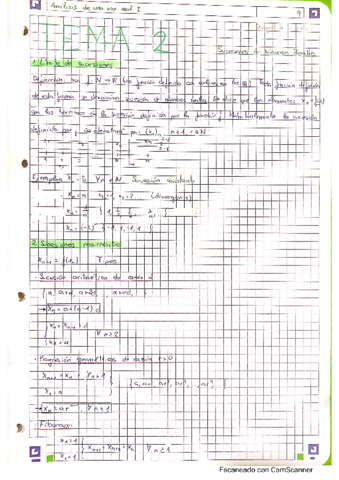 Análisis de una var real I
9
TEMA 2
Sucesiones de Números Reales
1. Límite de sucesiones
Definición: Sea f: N → R (una función definida con valores en los R). Toda función definida
de esta forma se denomina sucesión de números reales. Se dice que los elementos xₙ = f(n)
son los términos de la sucesión definida por la función f. Habitualmente la sucesión
definida por f se denotará por (xₙ), n ≥ 1, n ∈ N
Ejemplos xₙ = 5 ∀n ∈ N Sucesión constante
xₙ = n x₁ = 1, x₂ = 2... (divergente)
xₙ = 1/n
xₙ = (-1)ⁿ {-1, 1, -1, 1, }
2. Sucesiones recurrentes
xₙ₊₁ = f(xₙ) Tipos
· Sucesión aritmética de razón
{a, a+d, a+2d, , a+nd, }
xₙ = a + (n-1)d
xₙ = xₙ₋₁ + d
∀n ≥ 2
x₁ = a
· Progresión geométrica de razón r > 0
xₙ₊₁ = xₙ · r ∀n ≥ 1
x₁ = a
{a, ar, ar², ar³, ..., arⁿ, }
→ xₙ = arⁿ⁻¹ ∀n ≥ 1
· Fibonacci
xₙ₊₂ = xₙ₊₁ + xₙ ∀n ≥ 1
Escaneado con CamScanner